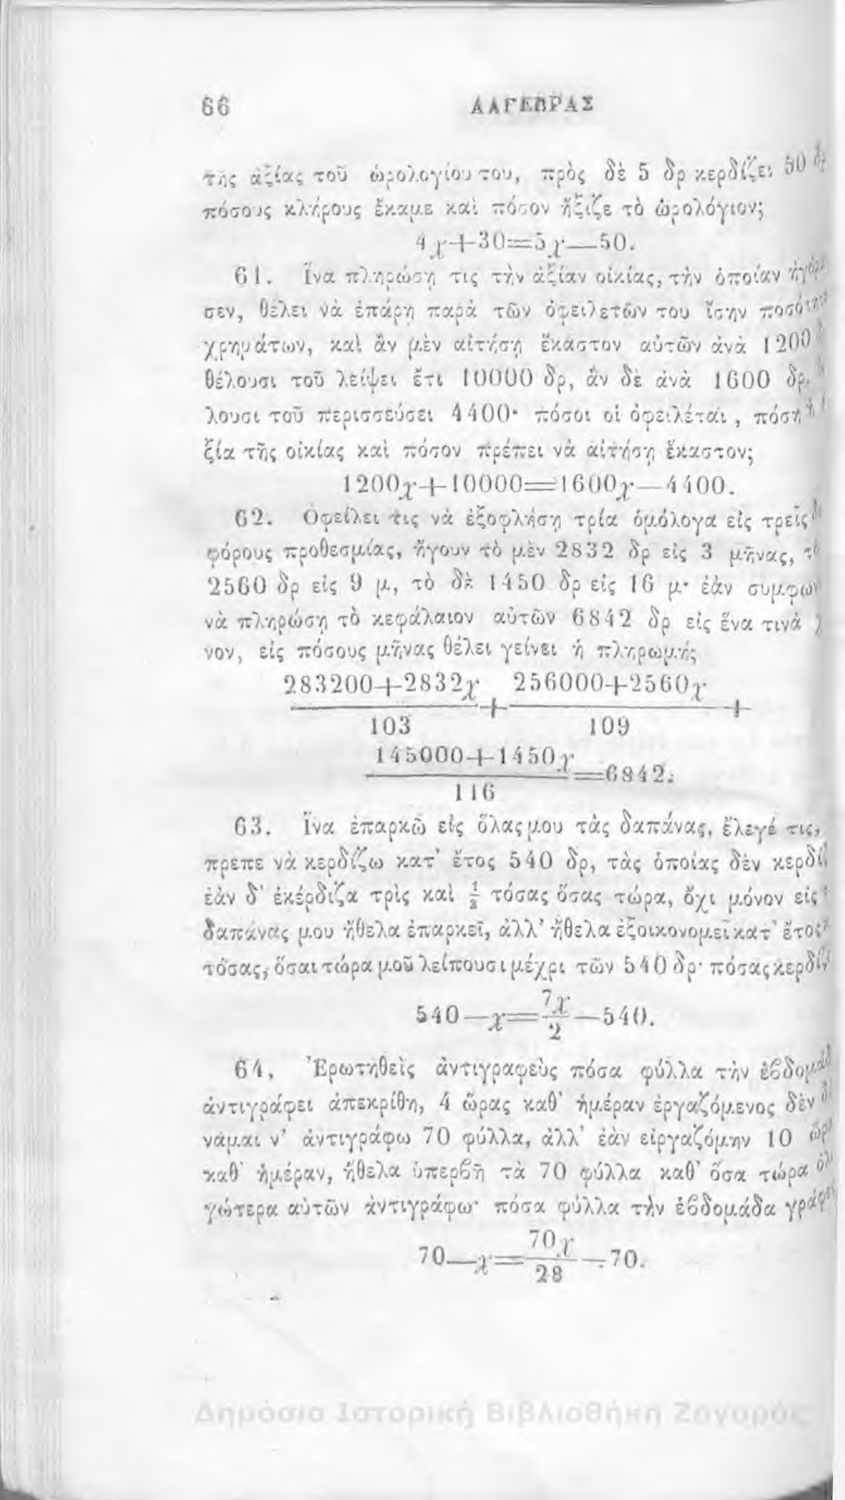 66 ΑΛΓΕΒΡΑΣ
της ἀξίας τοῦ ὡρολογίου του, πρὸς δὲ 5 δρ κερδίζει 50
πόσους κλήρους ἔκαμε καὶ πόσον ἤξιζε τὸ ὡρολόγιον;
4χ+30=5χ—50.
61. Ἵνα πληρώσῃ τις τὴν ἀξίαν οἰκίας, τὴν ὁποίαν
σεν, θέλει νὰ ἐπάρῃ παρὰ τῶν ὀφειλετῶν του ἴσην
χρημάτων, καὶ ἂν μὲν αἰτήσῃ ἕκαστον αὐτῶν ἀνὰ 1200
θέλουσι τοῦ λείψει ἔτι 10000 δρ, ἂν δὲ ἀνὰ 1600 δρ.
λουσι τοῦ περισσεύσει 4400· πόσοι οἱ ὀφειλέται, πόση
ξία τῆς οἰκίας καὶ πόσον πρέπει νὰ αἰτήσῃ ἕκαστον;
1200χ+10000=1600χ—4400.
62. Ὀφείλει τις νὰ ἐξοφλήσῃ τρία ὁμόλογα εἰς τρεῖς
φόρους προθεσμίας, ἤγουν τὸ μὲν 2832 δρ εἰς 3 μῆνας,
2560 δρ εἰς 9 μ, τὸ δὲ 1450 δρ εἰς 16 μ· ἐὰν
νὰ πληρώσῃ τὸ κεφάλαιον αὐτῶν 6842 δρ εἰς ἕνα τινὰ
νον, εἰς πόσους μῆνας θέλει γείνει ἡ πληρωμή;
283200+2832χ 256000+2560χ
+ +
103 109
145000+1450χ
=6842.
116
63. Ἵνα ἐπαρκῶ εἰς ὅλας μου τὰς δαπάνας, ἔλεγέ τις,
πρεπε νὰ κερδίζω κατ' ἔτος 540 δρ, τὰς ὁποίας δὲν
ἐὰν δ' ἐκέρδιζα τρὶς καὶ ½ τόσας ὅσας τώρα, ὄχι μόνον εἰς
δαπάνας μου ἤθελα ἐπαρκεῖ, ἀλλ' ἤθελα ἐξοικονομεῖ κατ' ἔτος
τόσας, ὅσαι τώρα μοῦ λείπουσι μέχρι τῶν 540 δρ· πόσας
540—χ=7χ/2—540.
64, Ἐρωτηθεὶς ἀντιγραφεὺς πόσα φύλλα τὴν
ἀντιγράφει ἀπεκρίθη, 4 ὥρας καθ' ἡμέραν ἐργαζόμενος δὲν
νάμαι ν' ἀντιγράφω 70 φύλλα, ἀλλ' ἐὰν εἰργαζόμην 10
καθ' ἡμέραν, ἤθελα ὑπερβῆ τὰ 70 φύλλα καθ' ὅσα τώρα
γώτερα αὐτῶν ἀντιγράφω· πόσα φύλλα τὴν ἑβδομάδα
70—χ=70χ/28—70.
Δημόσια Ιστορική Βιβλιοθήκη Ζαγοράς